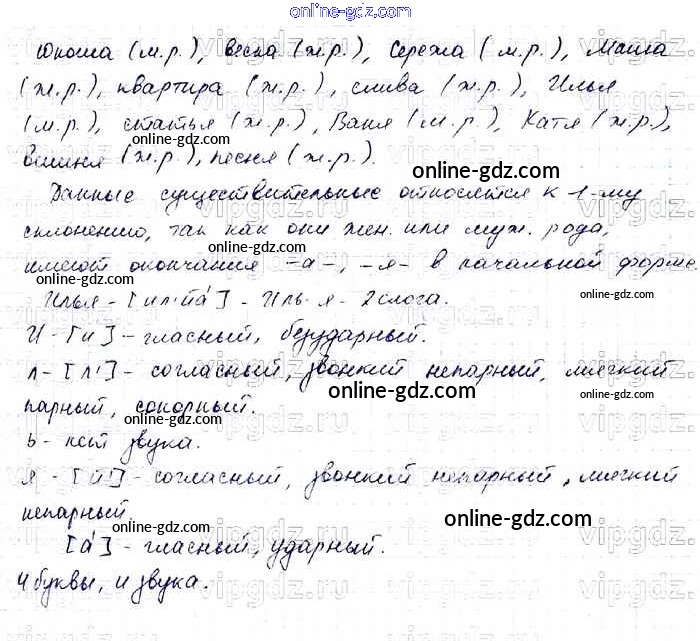 online-gdz.com
Юноша (м.р.), весна (ж.р.), Сережа (м.р.), Маша
(ж.р.), квартира (ж.р.), слива (ж.р.), Илья
(м.р.), статья (ж.р.), Ваня (м.р.), Катя (ж.р.),
online-gdz.com
вишня (ж.р.), песня (ж.р.).
online-gdz.com
Данные существительные относятся к 1-му
online-gdz.com
склонению, так как они жен. или муж. рода,
online-gdz.com
имеют окончания -а-, -я- в начальной форме.
online-gdz.com
Илья - [ил'й'а́] - Иль-я - 2 слога.
online-gdz.com
И - [и] - гласный, безударный.
л - [л'] - согласный, звонкий непарный, мягкий
online-gdz.com
парный, сонорный.
online-gdz.com
ь - нет звука.
я - [й'] - согласный, звонкий непарный, мягкий
непарный.
online-gdz.com
online-gdz.com
[а́] - гласный, ударный.
4 буквы, 4 звука.
online-gdz.com
online-gdz.com